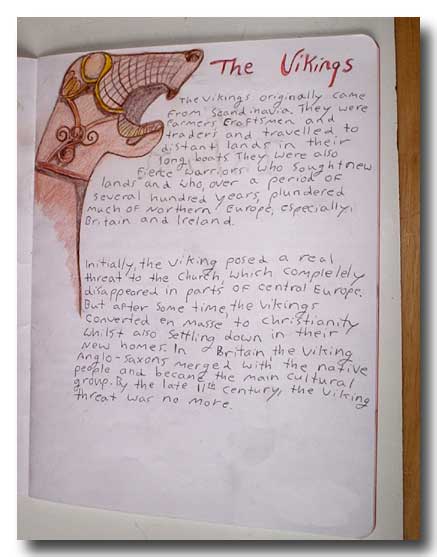 The Vikings
The vikings originally came
from Scandinavia. They were
Farmers, Craftsmen and
traders and travelled to
distant lands in their
long boats They were also
Fierce warriors who sought new
lands and who, over a period of
several hundred years, plundered
much of northern Europe, especially
Britain and Ireland.
Initially, the viking posed a real
threat to the Church, which complelely
disappeared in parts of central Europe.
But after some time, the vikings
converted en masse to christianity
whilst also settling down in their
new homes. In Britain the viking
Anglo-saxons merged with the native
people and became the main cultural
group. By the late 11th century, the viking
threat was no more.